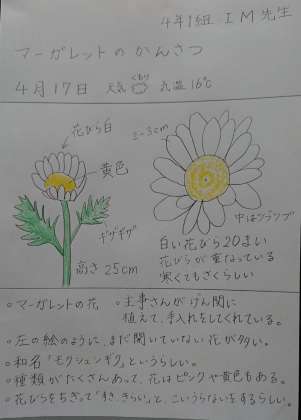 4年1組 I M 先生
マーガレットのかんさつ
4月17日 天気 くもり 気温 16℃
花びら白
黄色
ギザギザ
高さ 25cm
2~3cm
中はツブツブ
白い花びら20まい
花びらが重なっている
寒くてもさくらしい
○マーガレットの花
○主事さんがげん関に
植えて、手入れをしてくれている。
○左の絵のように、まだ開いていない花が多い。
○和名「モクシュンギク」というらしい。
○種類がたくさんあって、花はピンクや黄色もある。
○花びらをちぎって「すき、きらい」と、こいうらないをするらしい。